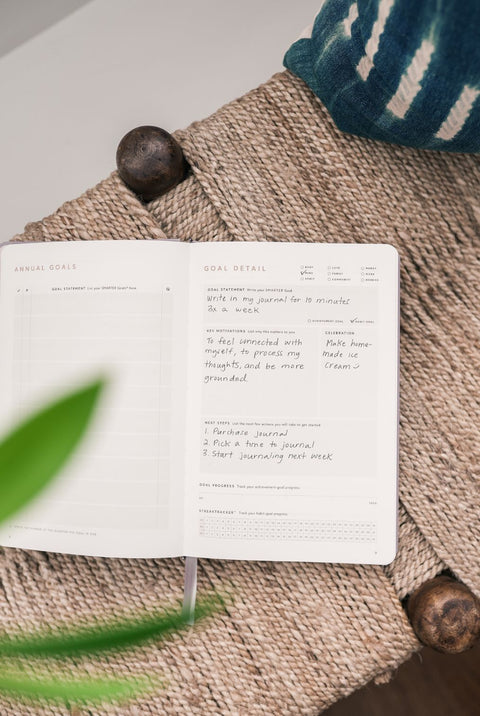 ANNUAL GOALS
GOAL STATEMENT List your SMARTER Goals® here.
GOAL DETAIL
BODY LOVE MONEY
MIND FAMILY WORK
SPIRIT COMMUNITY HOBBIES
GOAL STATEMENT Write your SMARTER Goal.
Write in my journal for 10 minutes
3x a week
ACHIEVEMENT GOAL ✓ HABIT GOAL
KEY MOTIVATIONS List why this matters to you.
To feel connected with
myself, to process my
thoughts, and be more
grounded.
CELEBRATION
Make home-
made ice
cream
NEXT STEPS List the next few actions you will take to get started.
1. Purchase journal
2. Pick a time to journal
3. Start journaling next week
GOAL PROGRESS Track your achievement goal progress.
0%
100%
STREAKTRACKER™ Track your habit goal progress.